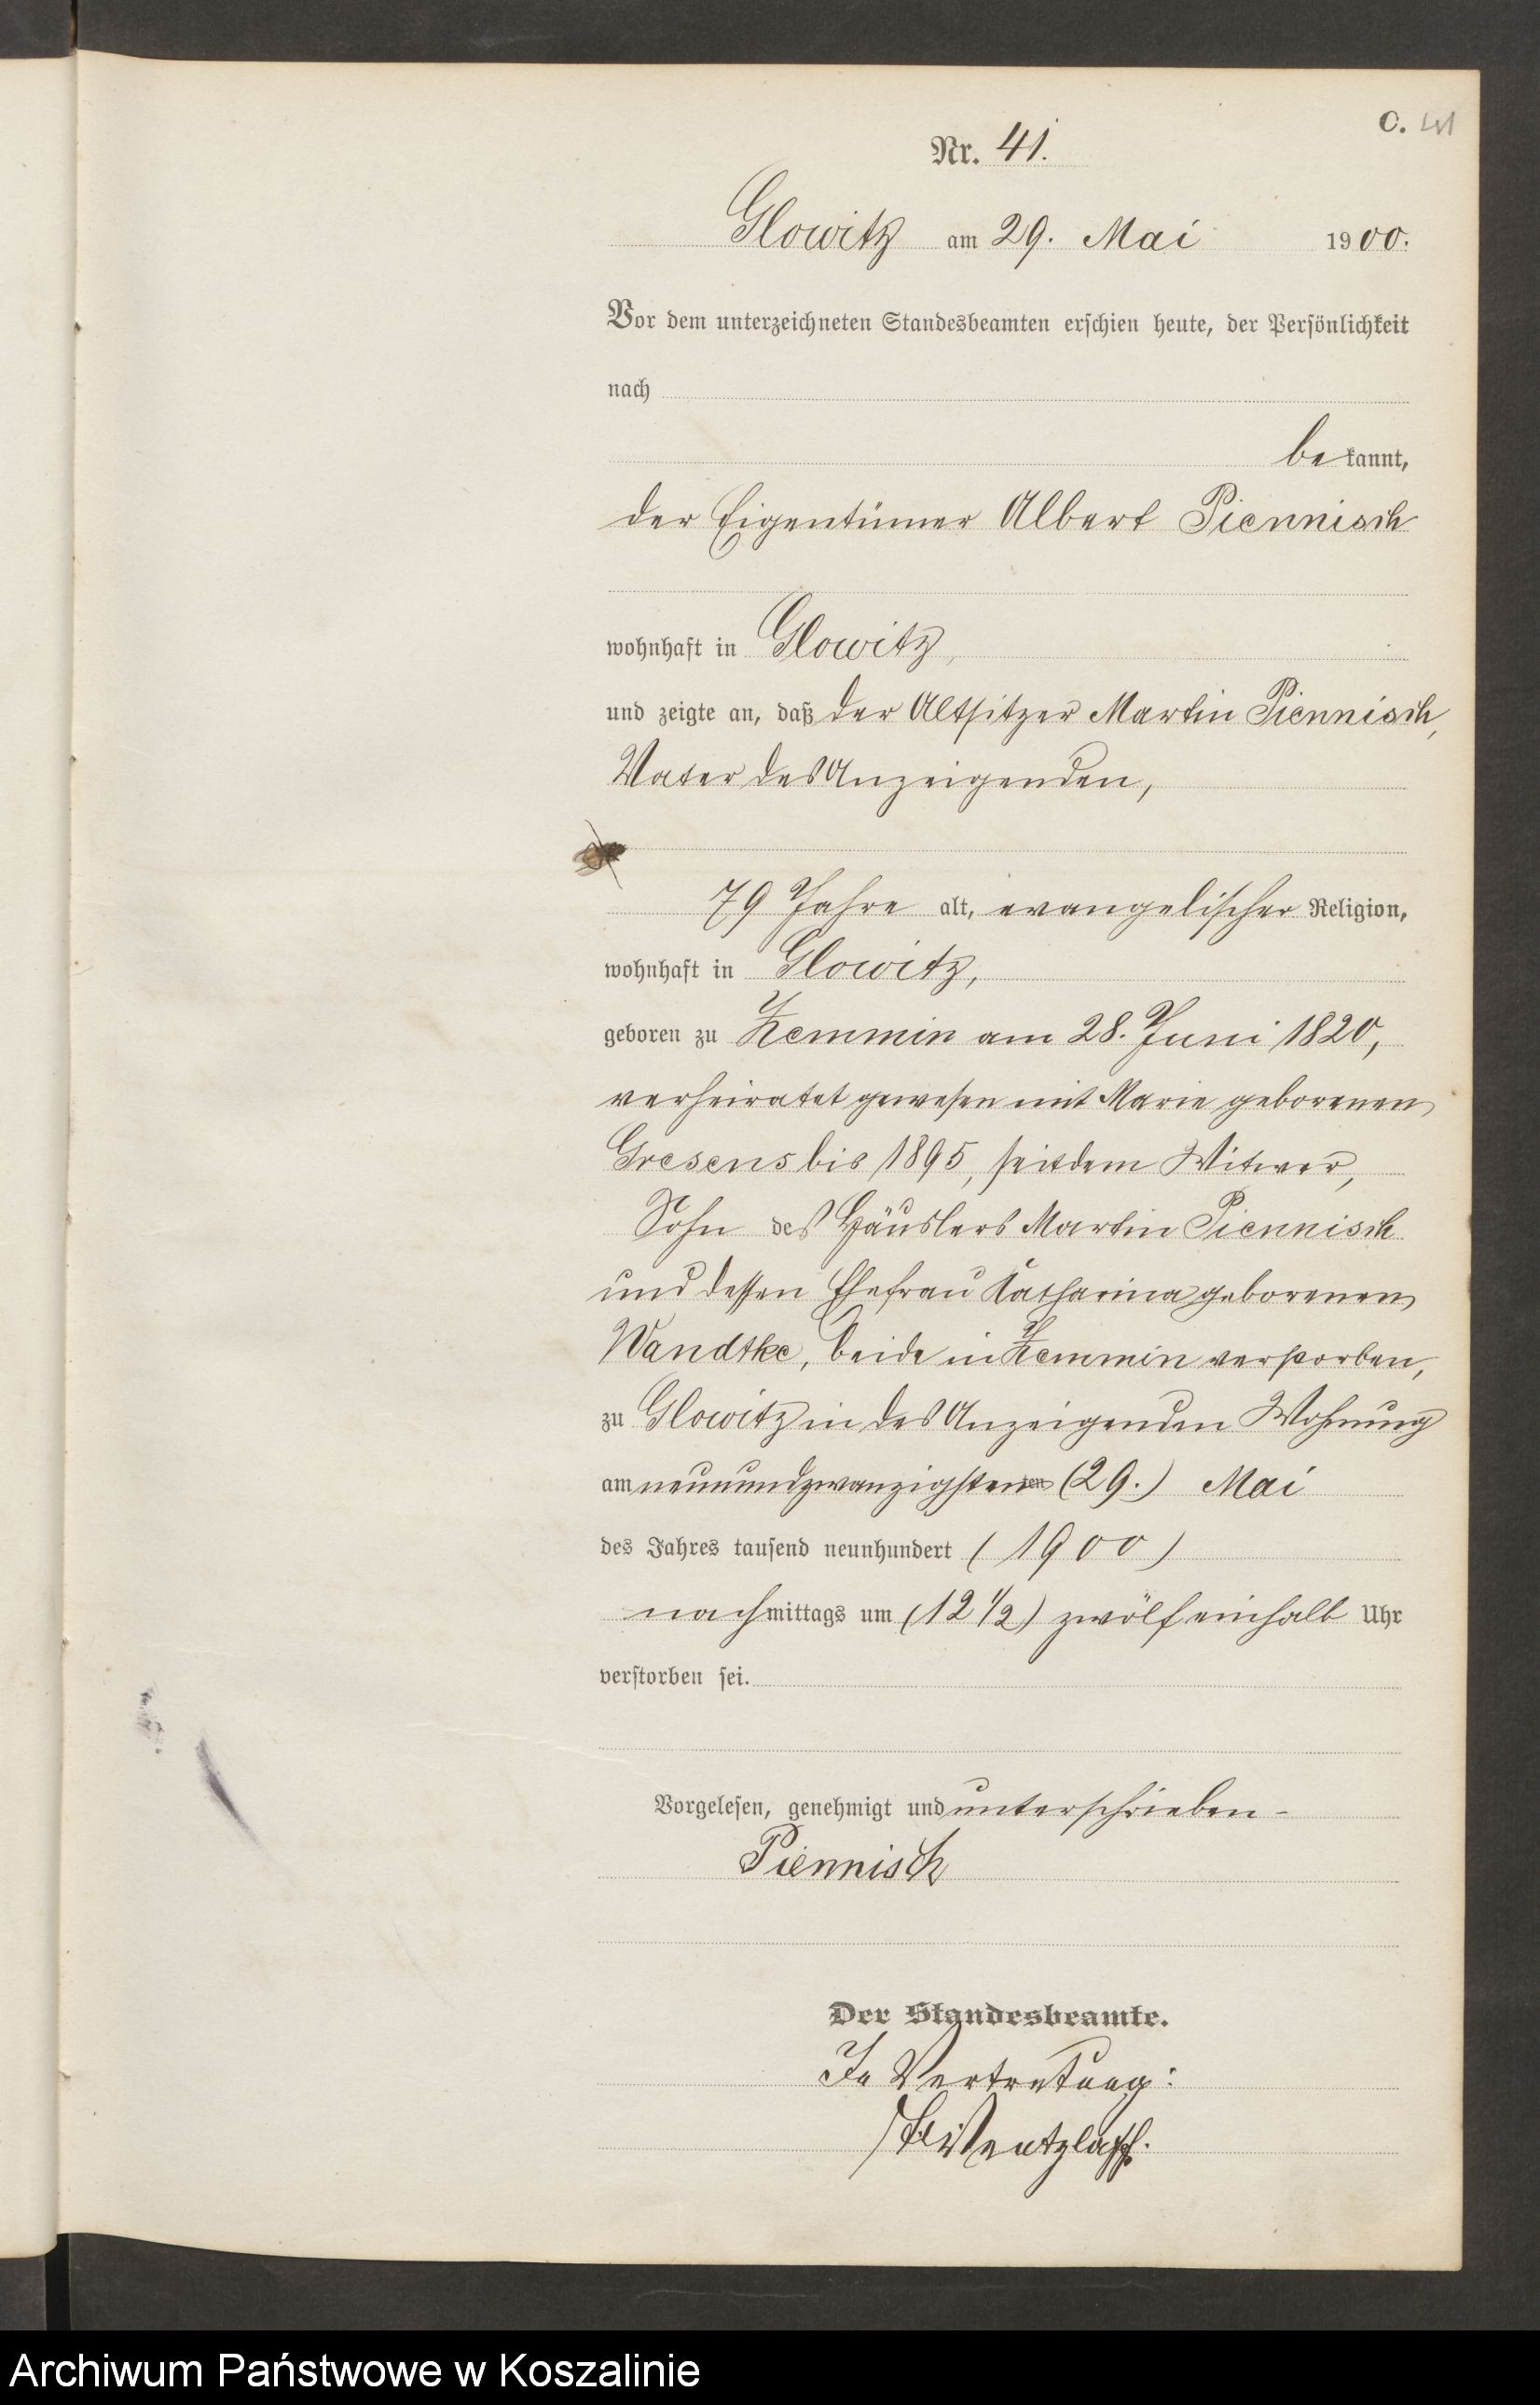 C. 41
Nr. 41.
Glowitz am 29. Mai 1900.
Vor dem unterzeichneten Standesbeamten erschien heute, der Persönlichkeit
nach
bekannt,
der Eigentümer Albert Piennisch
wohnhaft in Glowitz,
und zeigte an, daß der Altsitzer Martin Piennisch,
Vater des Anzeigenden,
79 Jahre alt, evangelischer Religion,
wohnhaft in Glowitz,
geboren zu Zemmin am 28. Juni 1820,
verheiratet gewesen mit Marie geborenen
Gresens bis 1895, seitdem Witwer,
Sohn des Häuslers Martin Piennisch
und dessen Ehefrau Katharina geborenen
Wandtke, beide in Zemmin verstorben,
zu Glowitz in des Anzeigenden Wohnung
am neunundzwanzigsten (29.) Mai
des Jahres tausend neunhundert (1900)
nachmittags um (12 1/2) zwölf einhalb Uhr
verstorben sei.
Vorgelesen, genehmigt und unterschrieben -
Piennisch
Der Standesbeamte.
In Vertretung:
Wentzlaff.
Archiwum Państwowe w Koszalinie